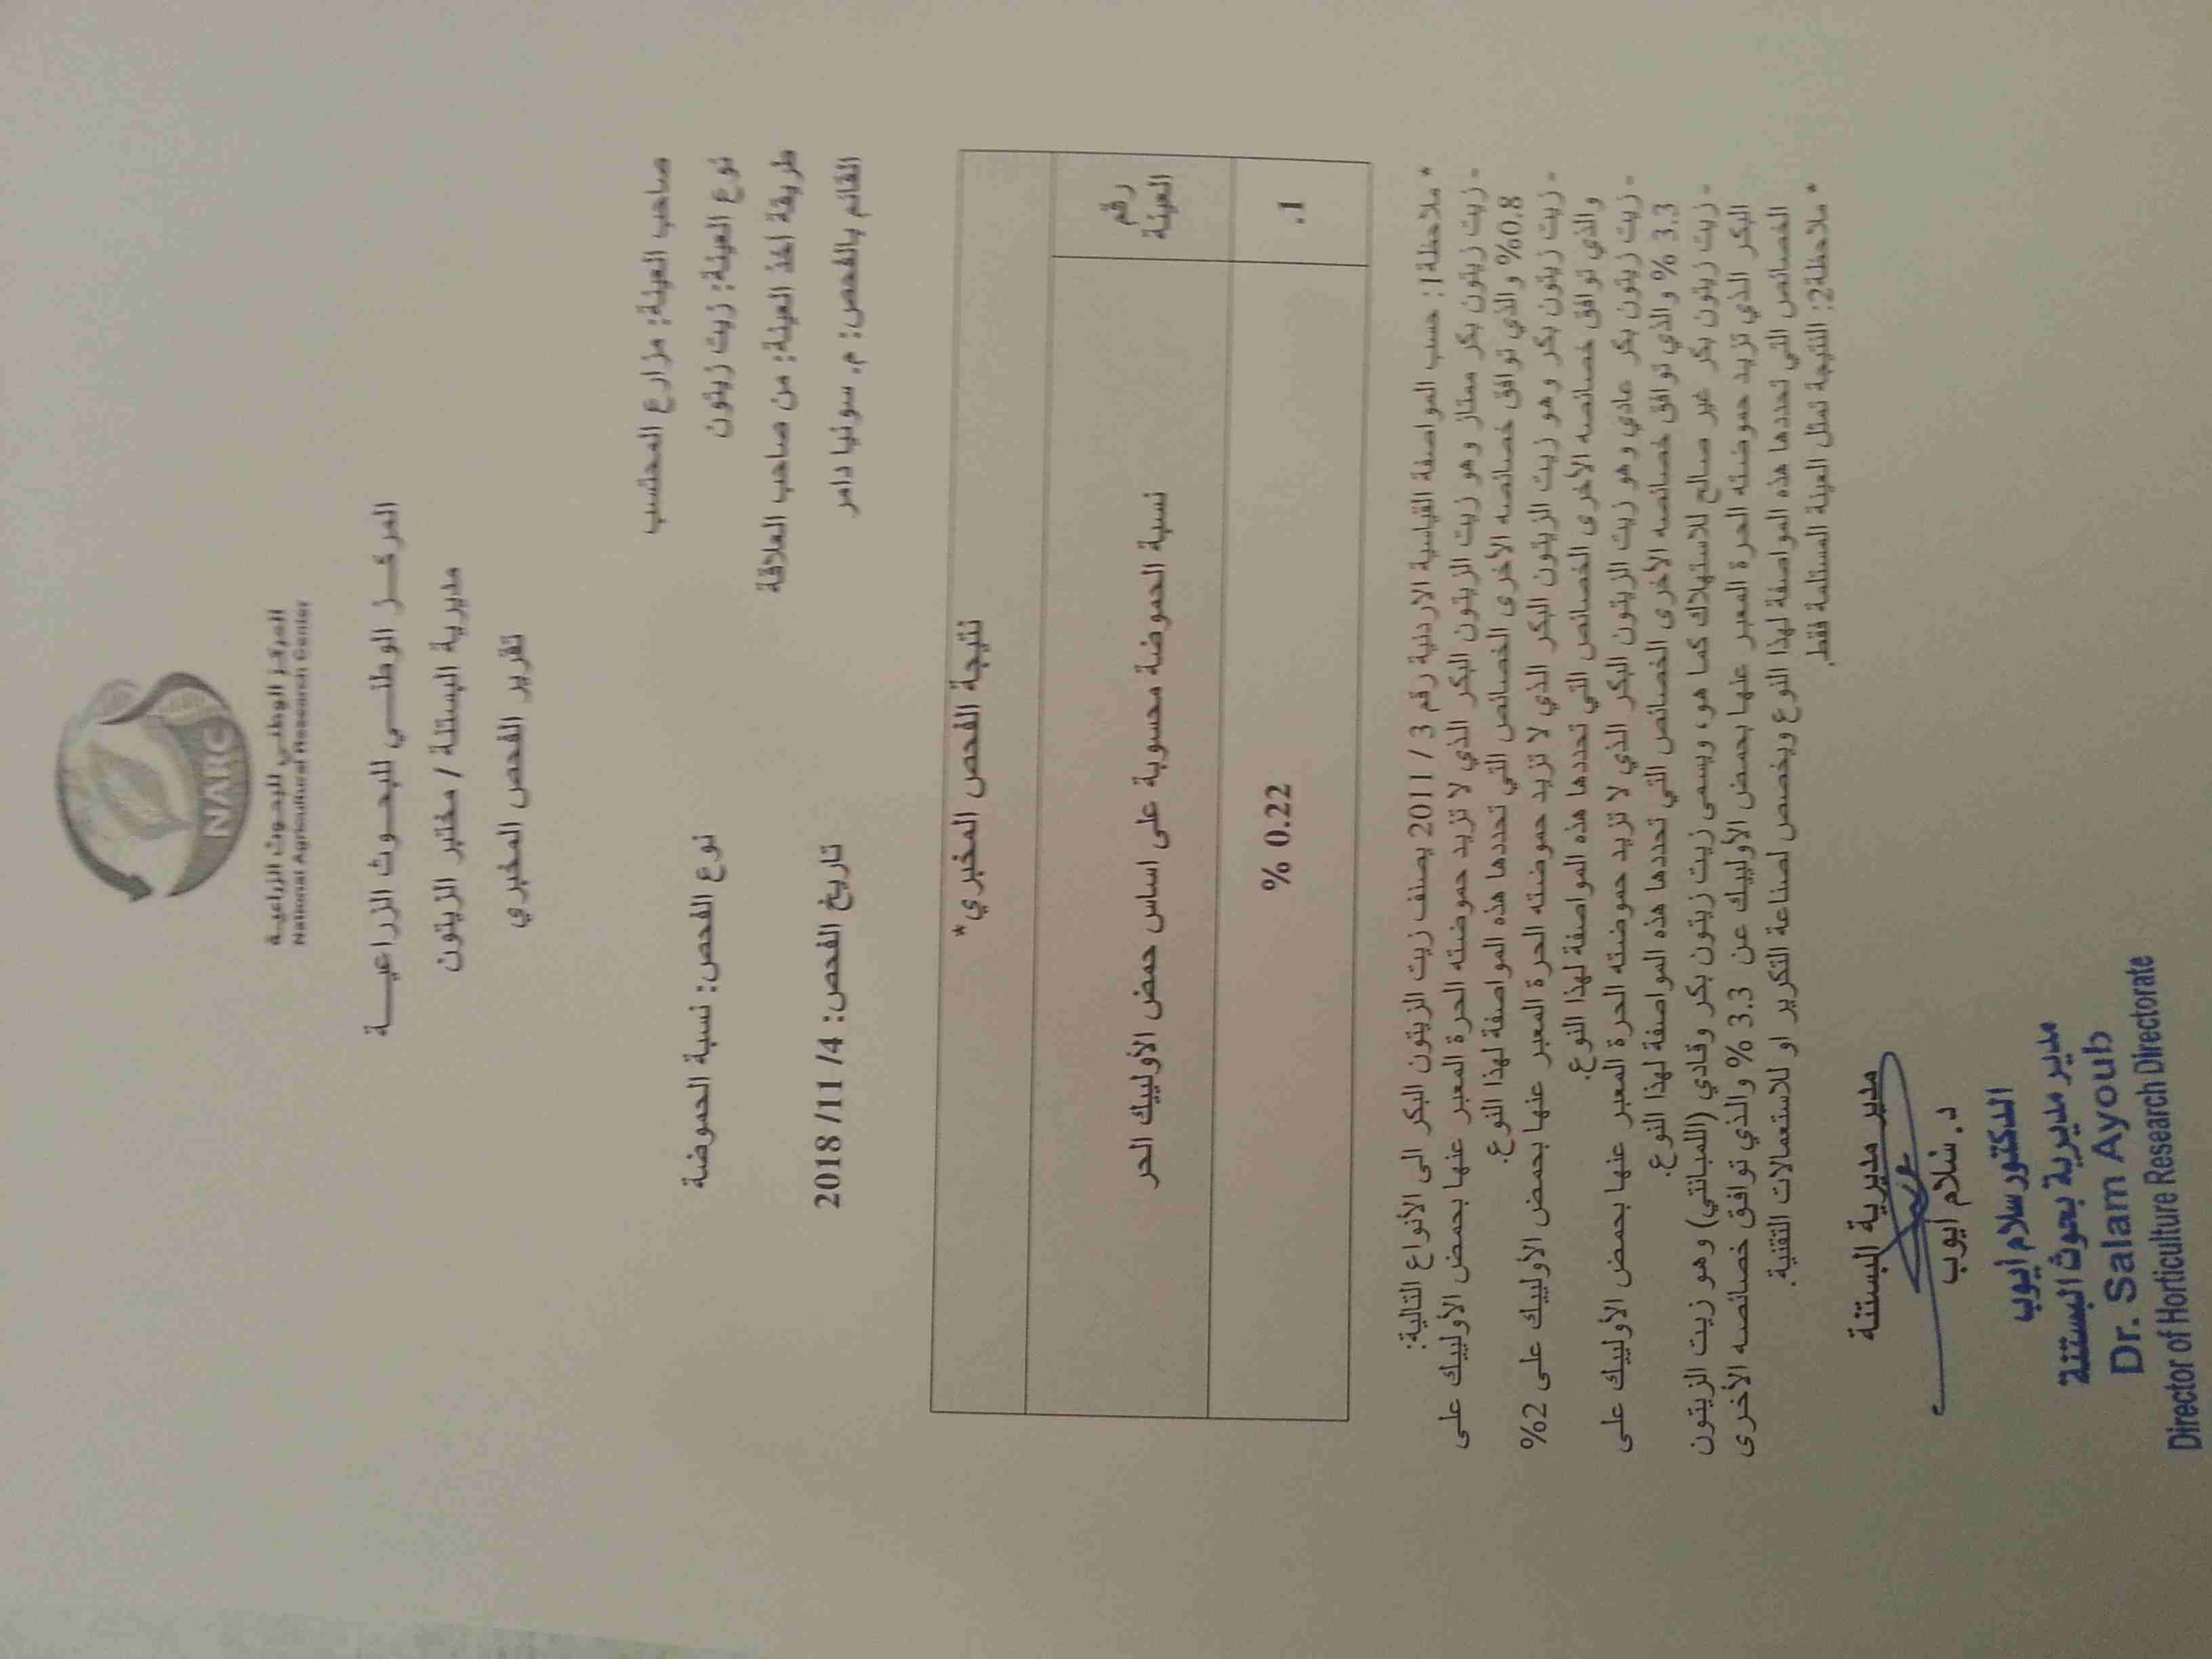 NARC
المركز الوطني للبحوث الزراعية
National Agricultural Research Center
المركــز الوطنــي للبحــوث الزراعيــة
مديرية البستنة / مختبر الزيتون
تقرير الفحص المخبري
صاحب العينة: مزارع المحتسب
نوع العينة: زيت زيتون
نوع الفحص: نسبة الحموضة
طريقة اخذ العينة: من صاحب العلاقة
القائم بالفحص: م. سونيا دامر
تاريخ الفحص: 4/ 11/ 2018
نتيجة الفحص المخبري*
رقم العينة
نسبة الحموضة محسوبة على اساس حمض الأولييك الحر
1.
0.22 %
* ملاحظة1: حسب المواصفة القياسية الاردنية رقم 3 / 2011 يصنف زيت الزيتون البكر الى الأنواع التالية:
- زيت زيتون بكر ممتاز وهو زيت الزيتون البكر الذي لا تزيد حموضته الحرة المعبر عنها بحمض الأولييك على
0.8% والذي توافق خصائصه الأخرى الخصائص التي تحددها هذه المواصفة لهذا النوع.
- زيت زيتون بكر وهو زيت الزيتون البكر الذي لا تزيد حموضته الحرة المعبر عنها بحمض الأولييك على 2%
والذي توافق خصائصه الأخرى الخصائص التي تحددها هذه المواصفة لهذا النوع.
- زيت زيتون بكر عادي وهو زيت الزيتون البكر الذي لا تزيد حموضته الحرة المعبر عنها بحمض الأولييك على
3.3 % والذي توافق خصائصه الأخرى الخصائص التي تحددها هذه المواصفة لهذا النوع.
- زيت زيتون بكر غير صالح للاستهلاك كما هو، ويسمى زيت زيتون بكر وقادي (اللمبانتي) وهو زيت الزيتون
البكر الذي تزيد حموضته الحرة المعبر عنها بحمض الأولييك عن 3.3 % والذي توافق خصائصه الأخرى
الخصائص التي تحددها هذه المواصفة لهذا النوع ويخصص لصناعة التكرير او للاستعمالات التقنية.
* ملاحظة2: النتيجة تمثل العينة المستلمة فقط.
مدير مديرية البستنة
د. سلام ايوب
الدكتور سلام ايوب
مدير مديرية بحوث البستنة
Dr. Salam Ayoub
Director of Horticulture Research Directorate